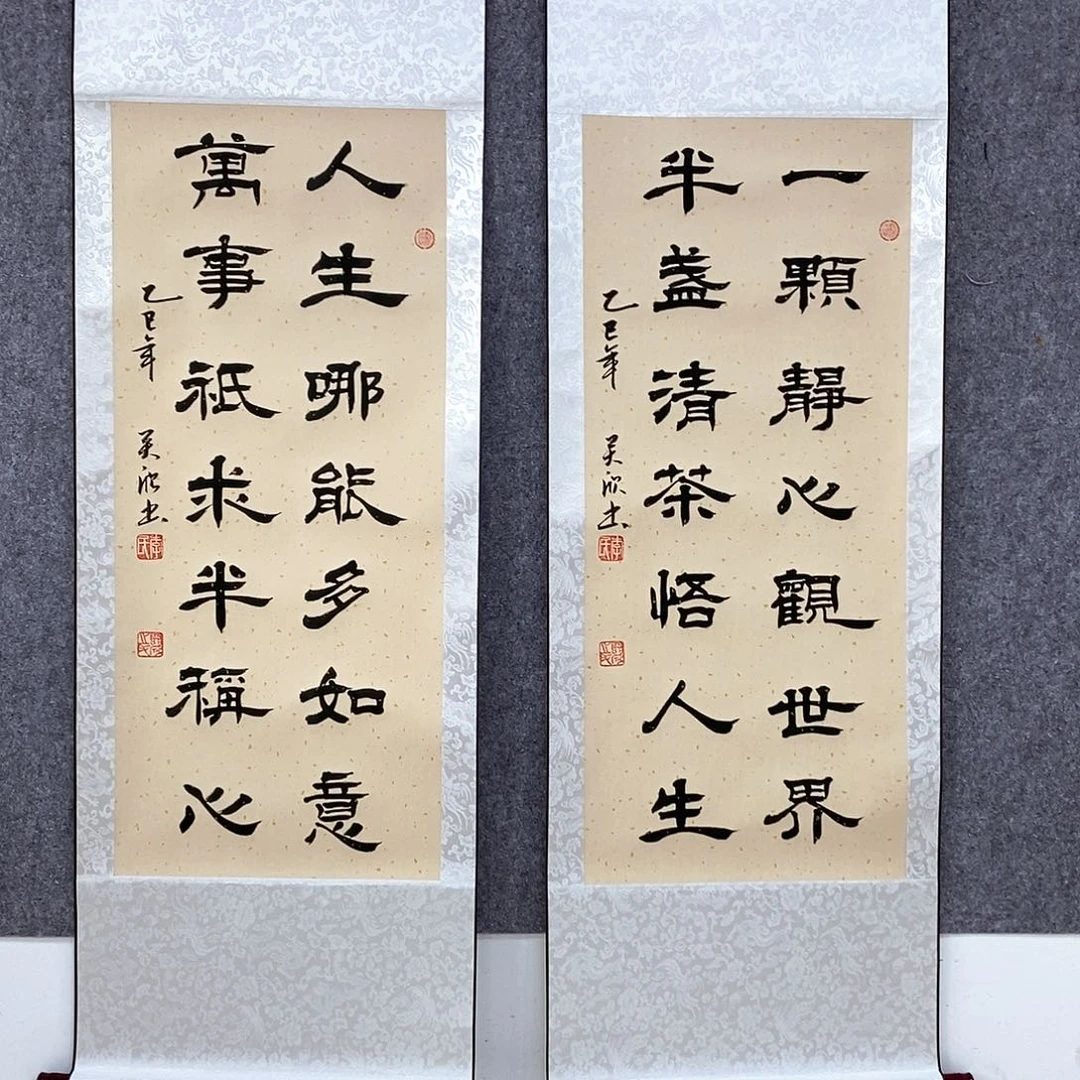 一顆靜心觀世界
半盞清茶悟人生
乙巳年 吴欣书
人生哪能多如意
萬事祇求半稱心
乙巳年 吴欣书